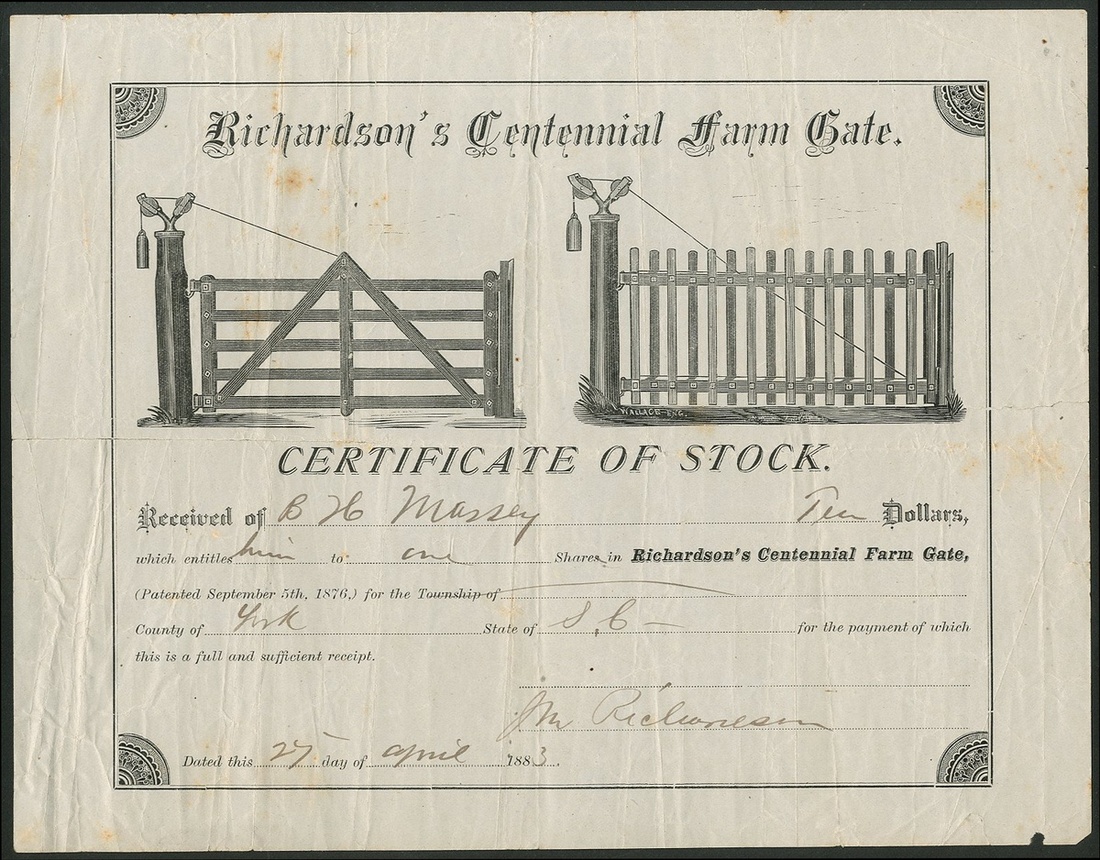 Richardson's Centennial Farm Gate.
WALLACE-ENG.
CERTIFICATE OF STOCK.
Received of B H Massey Ten Dollars,
which entitles him to one Shares in Richardson's Centennial Farm Gate,
(Patented September 5th, 1876,) for the Township of
County of York State of S, C — for the payment of which
this is a full and sufficient receipt.
JM Richardson
Dated this 27 day of april 1883.